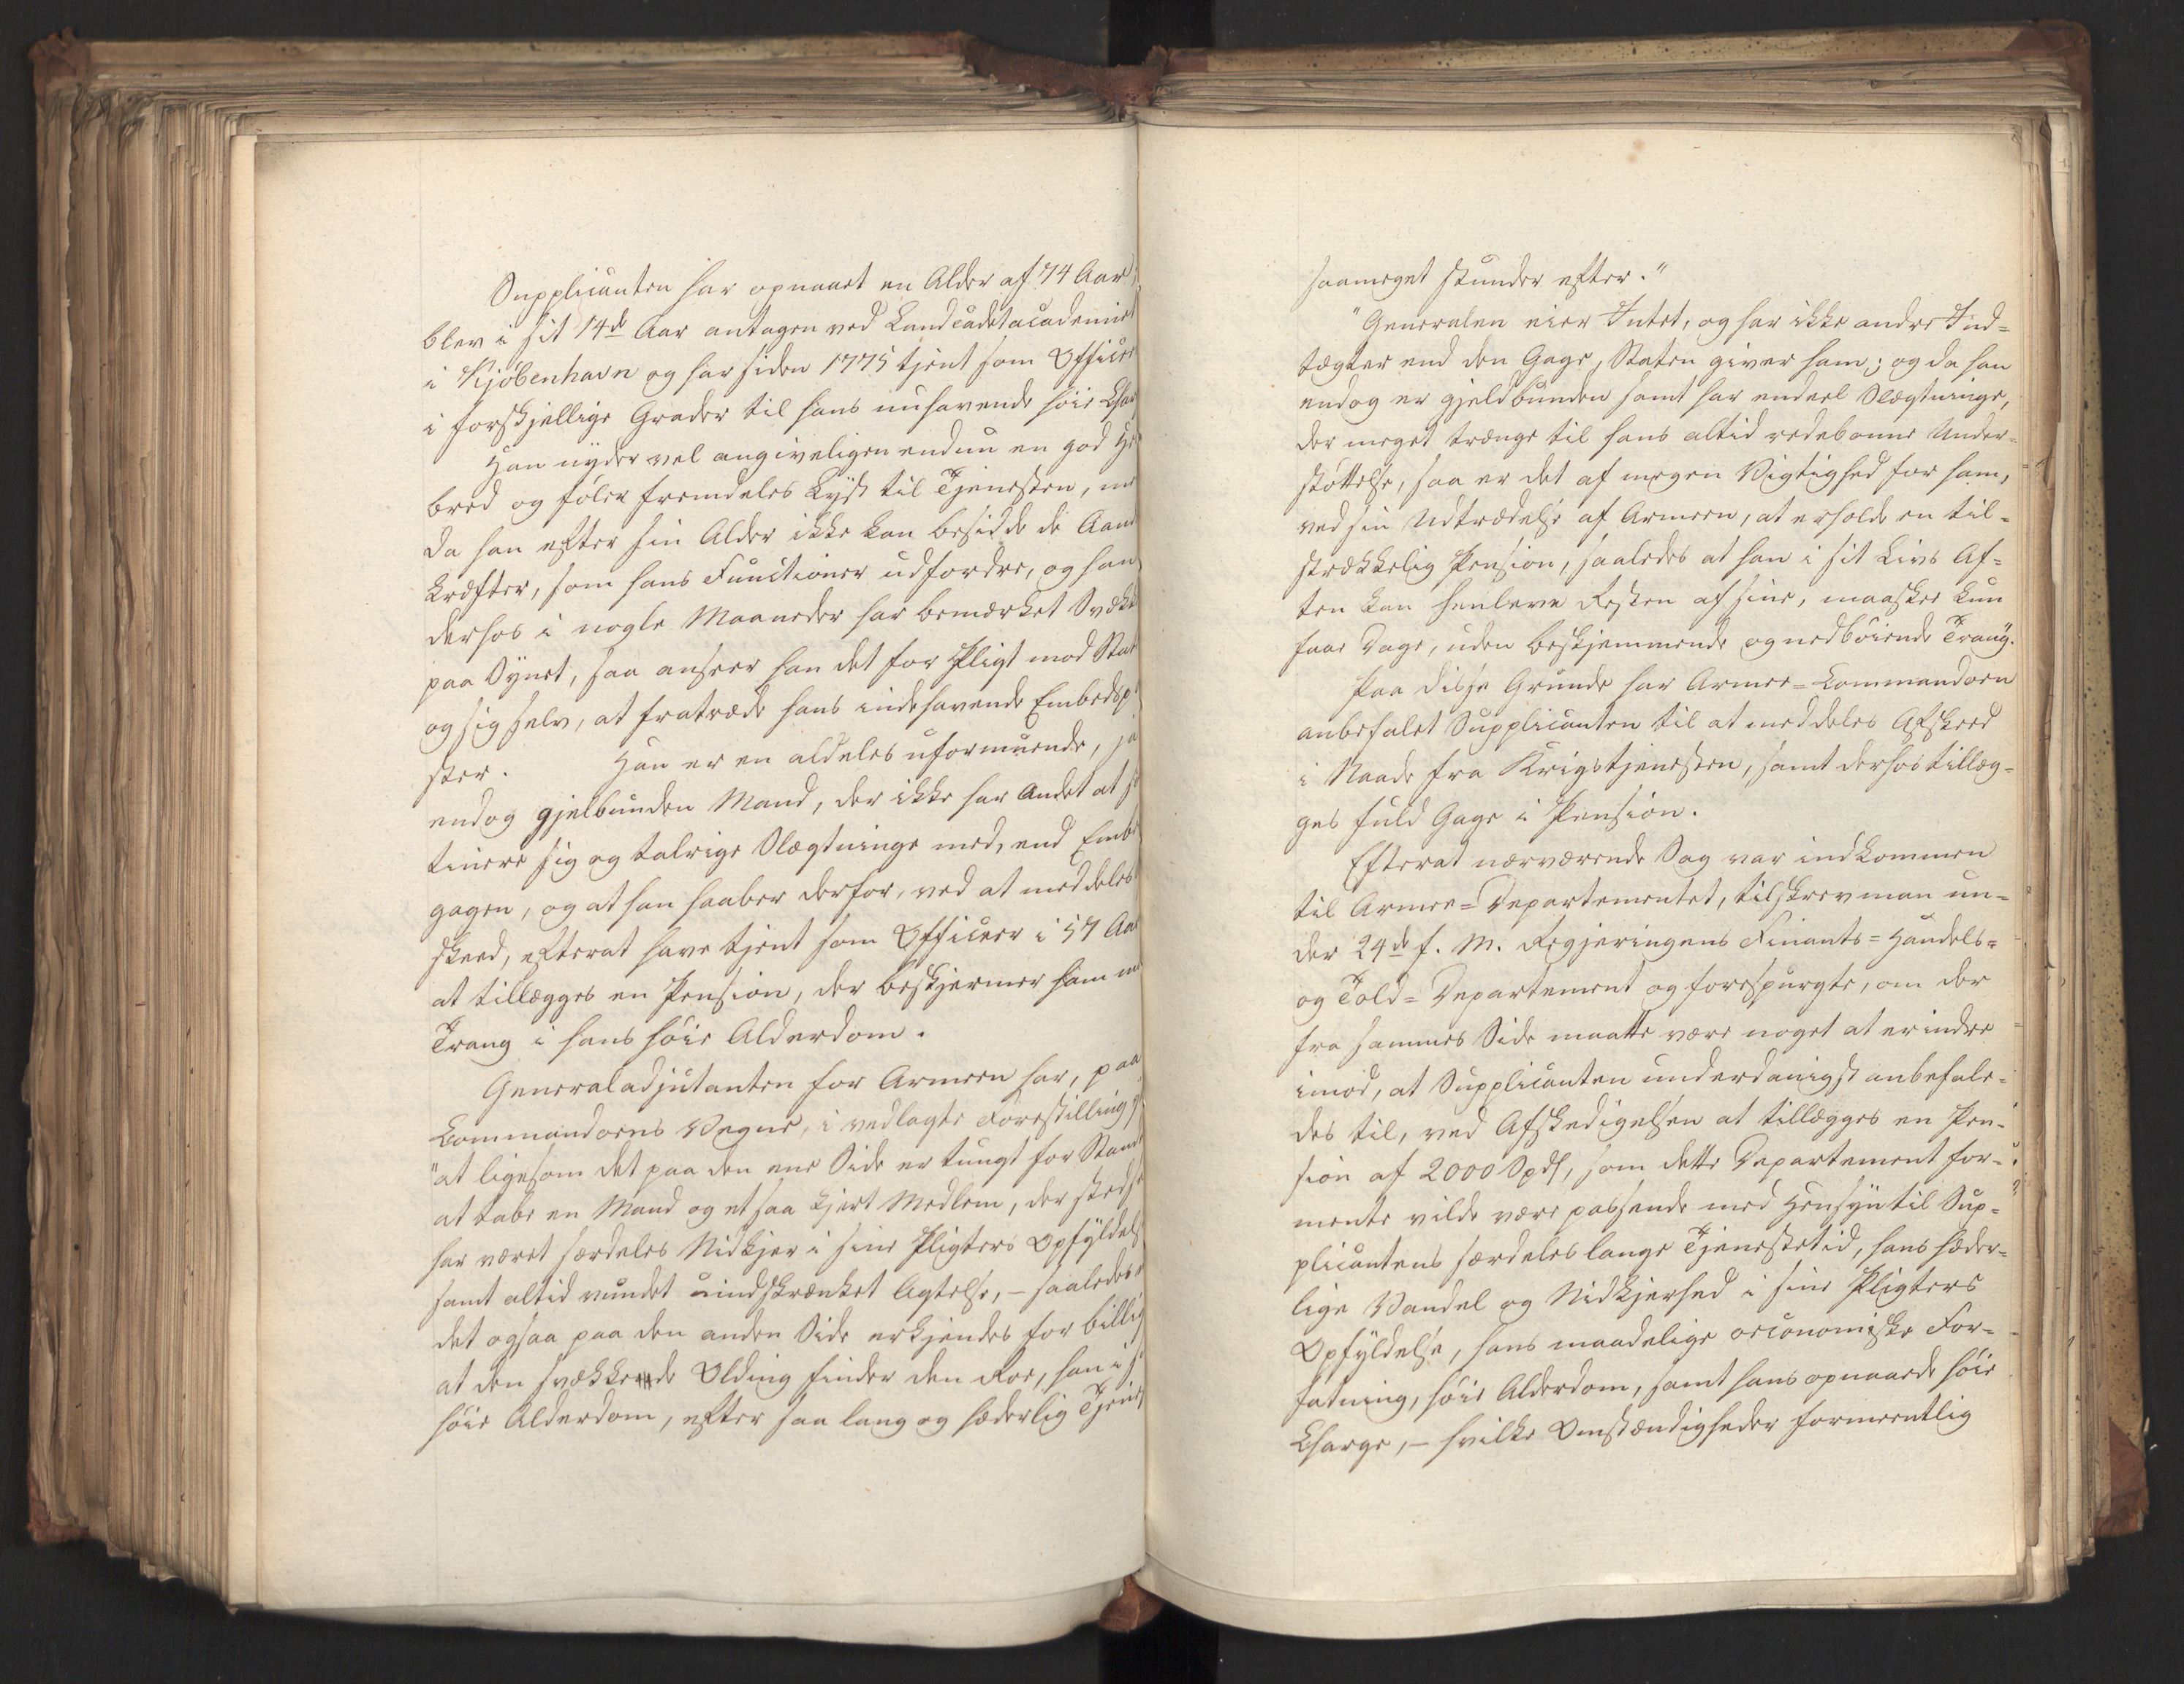 Supplicanten har opnaaet en Alder af 74 Aar,
blev i sit 14de Aar antagen ved Landcadetacademiet
i Kjöbenhavn og har siden 1775 tjent som Officeer
i forskjellige Grader til hans nuhavende höie Char
Han nyder vel angiveligen endnu en god He
bred og föler fremdeles Lyst til Tjenesten, me
da han efter sin Alder ikke kan besidde de Aand
kræfter, som hans Functioner udfordre, og han
derhos i nogle Maaneder har bemærket Svækk
paa Synet, saa anseer han det for Pligt mod Stat
og sig selv, at fratræde hans indehavende Embedsp
ster. Han er en aldeles uformuende, ja
endog gjelbunden Mand, der ikke har Andet at s
tinere sig og talrige Slægtninge med, end Embe
gagen, og at han haaber derfor, ved at meddeles
skeed, efterat have tjent som Officeer i 57 Aar
at tillægges en Pension, der beskjermer ham mo
Trang i hans höie Alderdom.
Generaladjutanten for Armeen har, paa
Commandoens Vegne, i vedlagte Forestilling y
"at ligesom det paa den ene Side er tungt for Stand
at tabe en Mand og et saa kjert Medlem, der stedse
har været særdeles Nidkjer i sine Pligters Opfyldels
samt altid vundet uindskrænket Agtelse, – saaledes
det ogsaa paa den anden Side erkjendes for billig
at den svækkede Olding finder den Roe, han i s
höie Alderdom, efter saa lang og hæderlig Tjenes
saameget stunder efter."
"Generalen eier Intet, og har ikke andre Ind=
tægter end den Gage, Staten giver ham; og da han
endog er gjeldbunden samt har endeel Slægtninge,
der meget trænge til hans altid redebonne Under=
stöttelse, saa er det af megen Vigtighed for ham,
ved sin Udtrædelse af Armeen, at erholde en til=
strækkelig Pension, saaledes at han i sit Livs Af=
ten kan henleve Resten af sine, maaskee kun
faae Dage, uden beskjemmende og nedböiende Trang.
Paa disse Grunde har Armee=Commandoen
anbefalet Supplicanten til at meddeles Afskeed
i Naade fra Krigstjenesten, samt derhos tillæg=
ges fuld Gage i Pension.
Efterat nærværende Sag var indkommen
til Armee=Departementet, tilskrev man un=
der 24de f. M. Regjeringens Finants= Handels=
og Told=Departement og forespurgte, om der
fra sammes Side maatte være noget at erindre
imod, at Supplicanten underdanigst anbefale=
des til, ved Afskedigelsen at tillægges en Pen=
sion af 2000 Spd, som dette Departement for=
mente vilde være passende med Hensyn til Sup=
plicantens særdeles lange Tjenestetid, hans hæder=
lige Vandel og Nidkjerhed i sine Pligters
Opfyldelse, hans maadelige oeconomiske For=
fatning, höie Alderdom, samt hans opnaaede höie
Charge, – hvilke Omstændigheder formeentlig